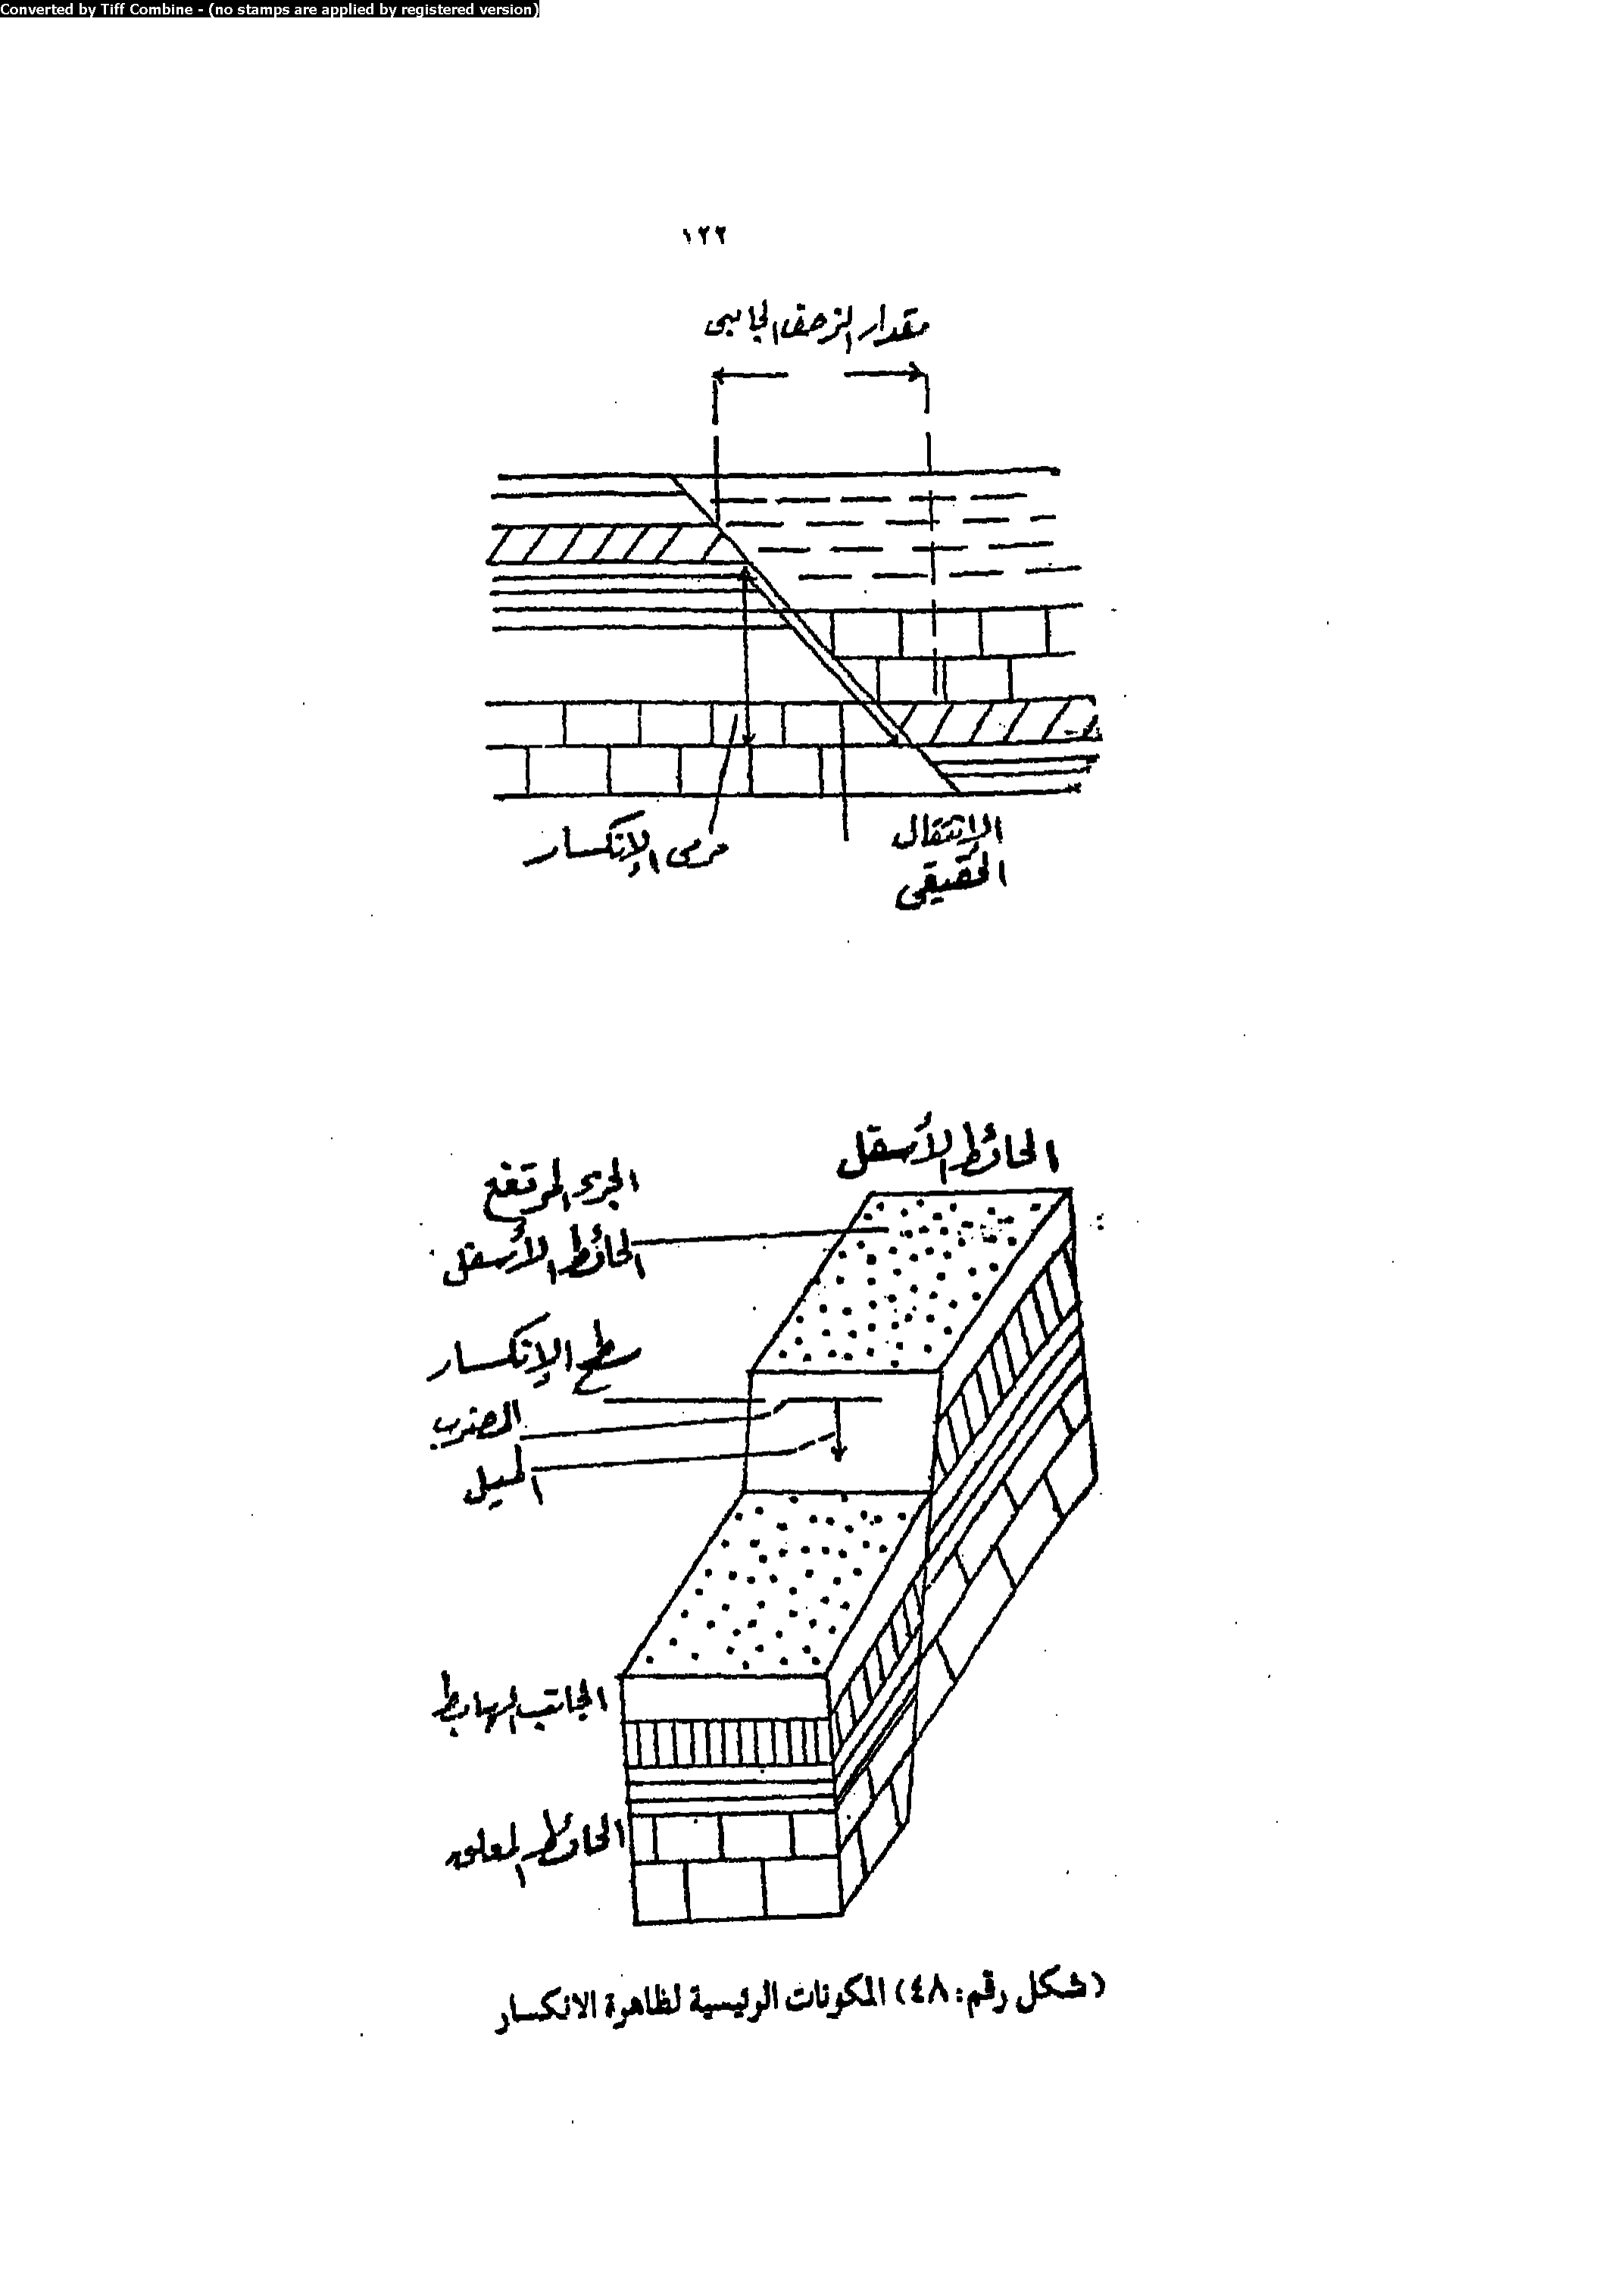 Converted by Tiff Combine - (no stamps are applied by registered version)
١٢٢
مقدار الزحف الجانبى
مرمى الإنكسار
الإنتقال
الحقيقى
الحائط الأسفل
الجزء المرتفع
الحائط الأسفل
سطح الإنكسار
المضرب
الميل
الجانب الهابط
الحائط المعلق
(شكل رقم: ٤٨) المكونات الرئيسية لظاهرة الانكسار